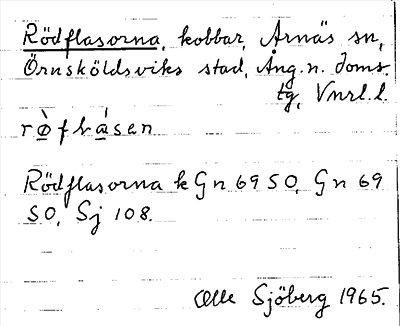 Rödflasorna, kobbar, Arnäs sn,
Örnsköldsviks stad, Ång.n. doms.
tg, Vnrl.l.
rø̀flásen
Rödflasorna k Gn 69 SO, Gn 69
SO, Sj 108.
Olle Sjöberg 1965.